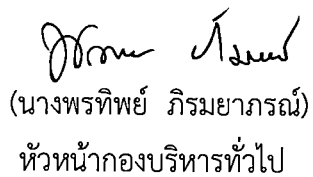 (นางพรทิพย์ ภิรมยาภรณ์)
หัวหน้ากองบริหารทั่วไป